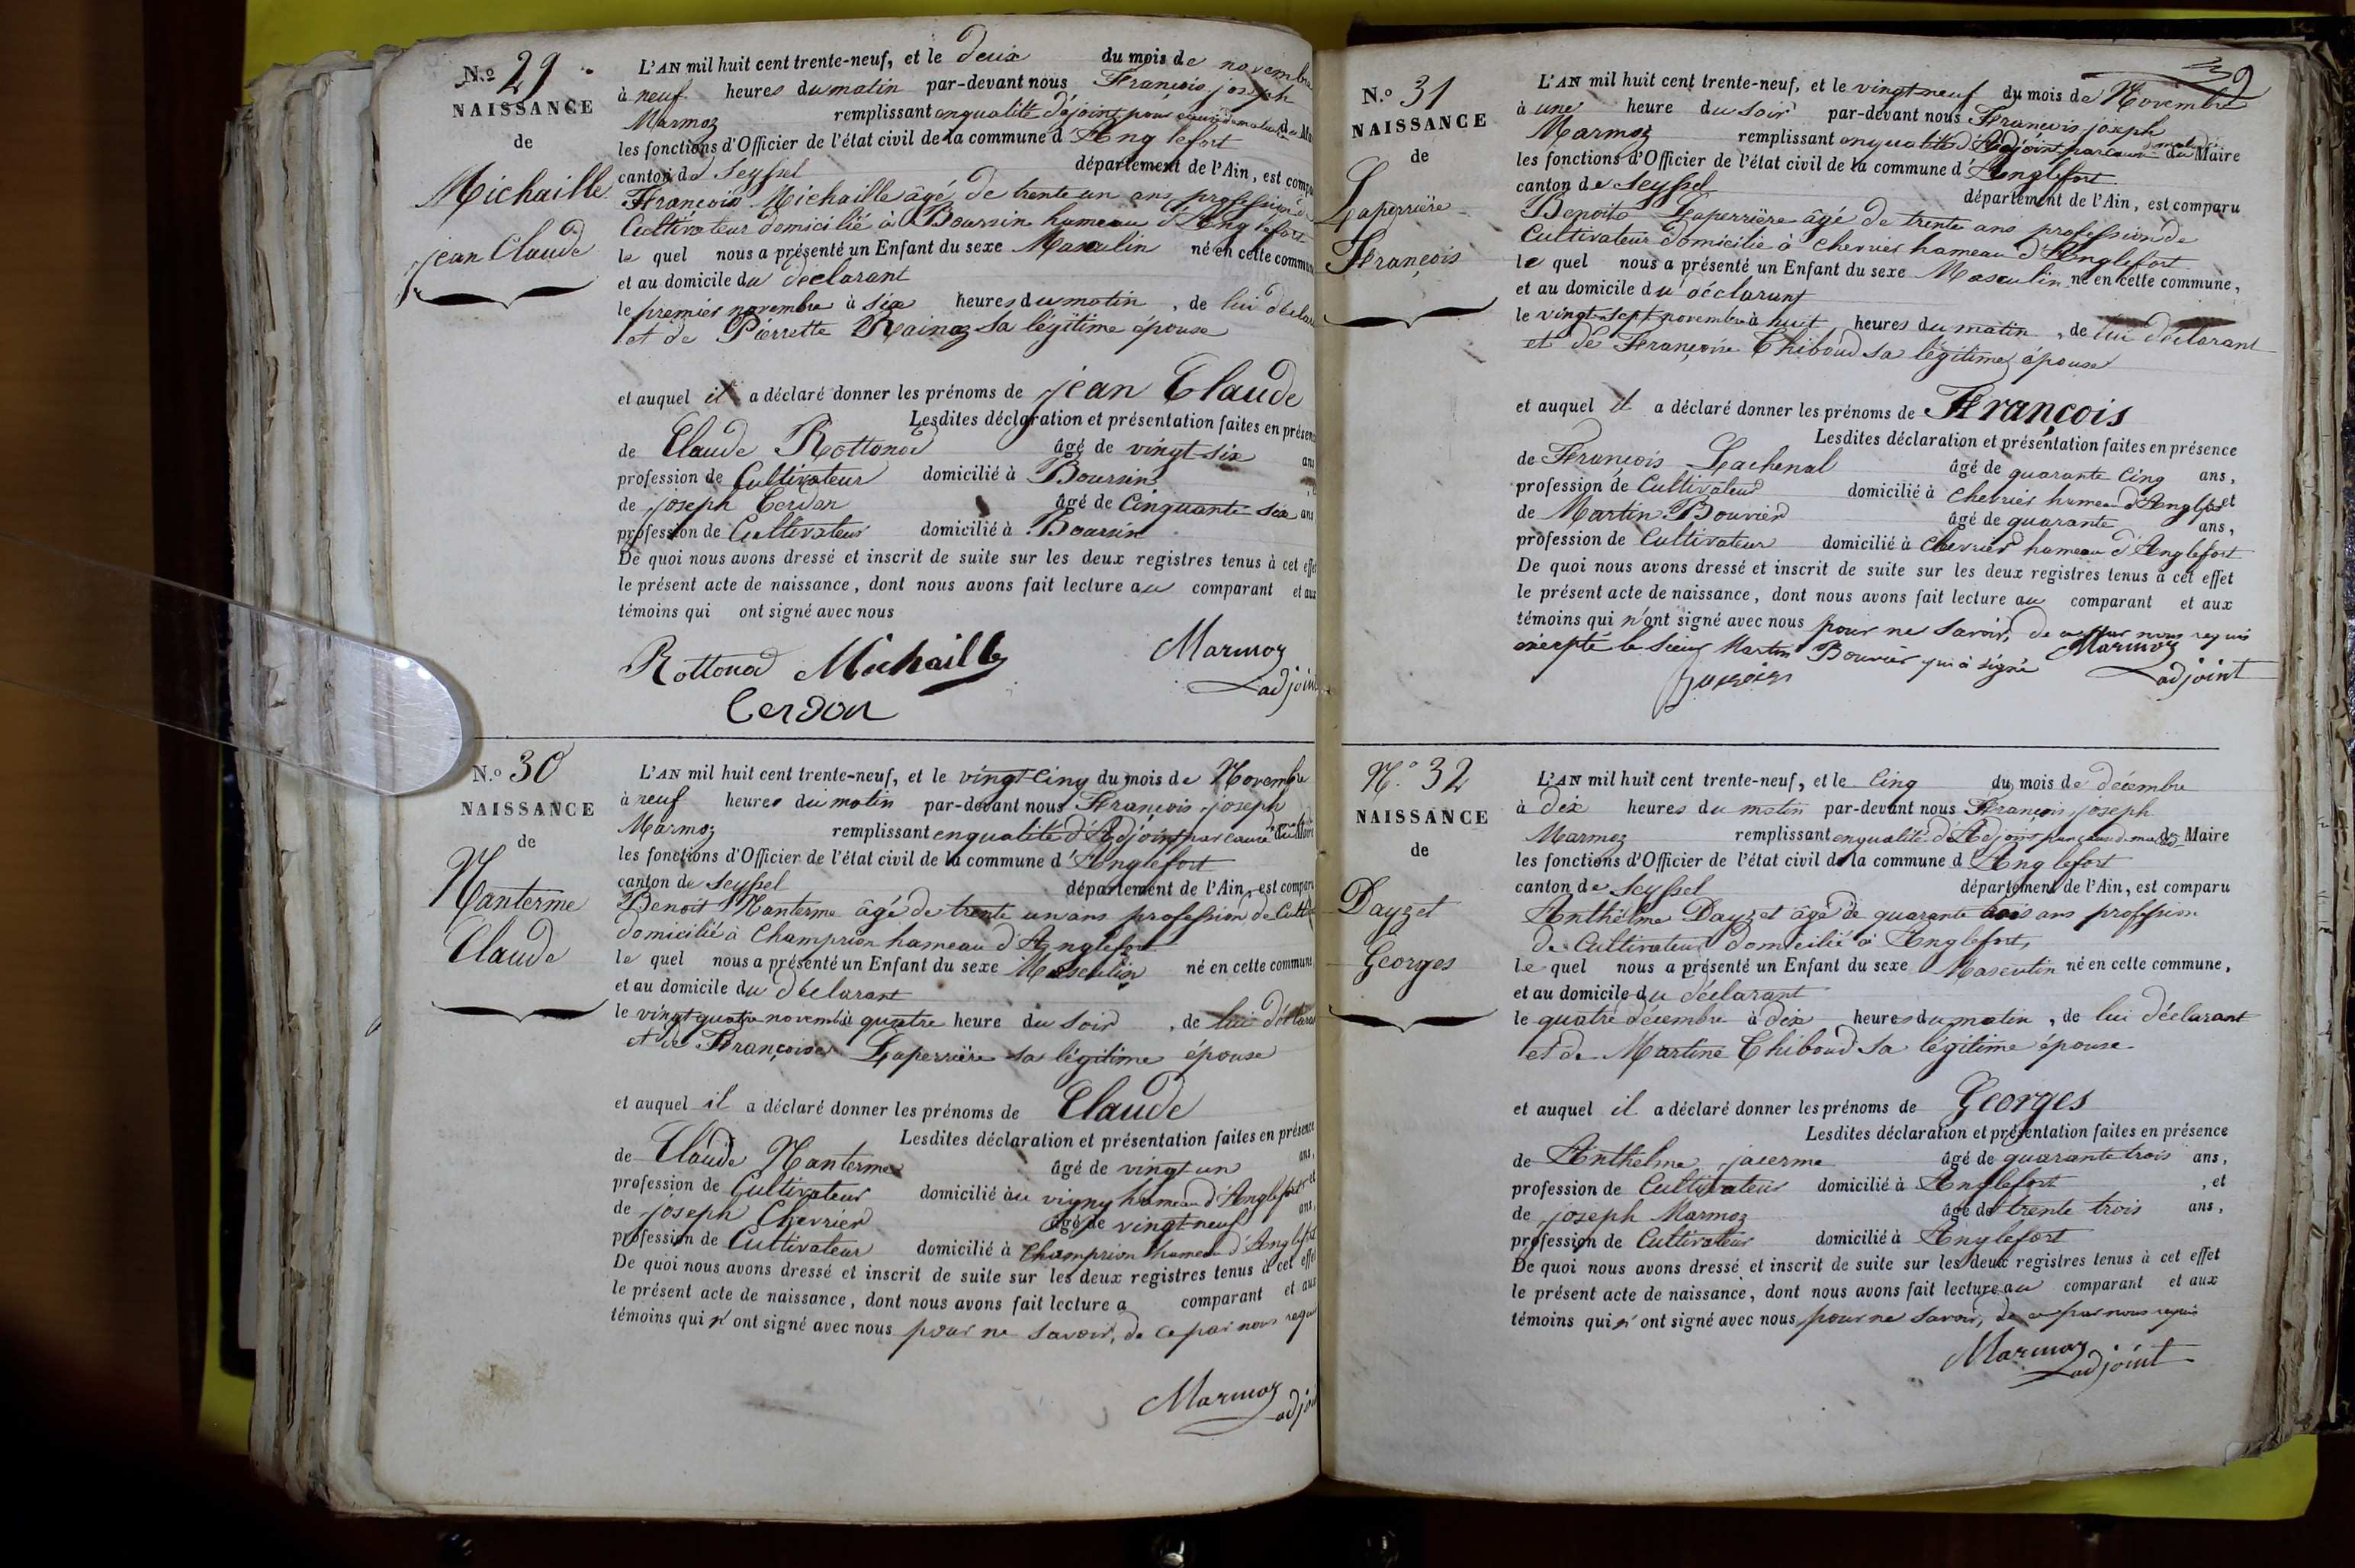 N.o 29
NAISSANCE
de
Michaille
jean Claude
L'AN mil huit cent trente-neuf, et le deux du mois de novembre
à neuf heures du matin par-devant nous François joseph
Marmoz remplissant enqualité d'ajoint pour cause de maladie du Ma
les fonctions d'Officier de l'état civil de la commune d'Anglefort
canton de Seyssel département de l'Ain, est compa
François Michaille âgé de trente un ans, profession de
Cultivateur domicilié à Boursin hameau d'Anglefort
le quel nous a présenté un Enfant du sexe Masculin né en cette commun
et au domicile du déclarant
le premier novembre à six heures du matin, de lui déclara
et de Pierrette Rainaz sa légitime épouse
et auquel il a déclaré donner les prénoms de jean Claude
Lesdites déclaration et présentation faites en présen
de Claude Rottonod âgé de vingt-six ans
profession de Cultivateur domicilié à Boursin
de joseph Cerdon âgé de Cinquante six ans
profession de Cultivateur domicilié à Boursin
De quoi nous avons dressé et inscrit de suite sur les deux registres tenus à cet effet
le présent acte de naissance, dont nous avons fait lecture au comparant et aux
témoins qui ont signé avec nous
Rottonod Michaille Marmoz
adjoint
Cerdon
N.o 30
NAISSANCE
de
Nanterme
Claude
L'AN mil huit cent trente-neuf, et le vingt-cinq du mois de Novembre
à neuf heures du matin par-devant nous François joseph
Marmoz remplissant enqualité d'Adjoint par cause du Maire
les fonctions d'Officier de l'état civil de la commune d'Anglefort
canton de Seyssel département de l'Ain, est compar
Benoit Nanterme âgé de trente un ans profession de Cultiv
domicilié à Champrion hameau d'Anglefort
le quel nous a présenté un Enfant du sexe Masculin né en cette commune
et au domicile du déclarant
le vingt quatre novembre à quatre heure du soir, de lui déclarant
et de Françoise Laperrière sa légitime épouse
et auquel il a déclaré donner les prénoms de Claude
Lesdites déclaration et présentation faites en présence
de Claude Nanterme âgé de vingt un ans,
profession de Cultivateur domicilié au vigny hameau d'Anglefort et
de joseph Chevrier âgé de vingt-neuf ans,
profession de Cultivateur domicilié à Champrion hameau d'Anglefort
De quoi nous avons dressé et inscrit de suite sur les deux registres tenus à cet effet
le présent acte de naissance, dont nous avons fait lecture a comparant et aux
témoins qui n'ont signé avec nous pour ne savoir, de ce par nous requis
Marmoz
adjoint
39
N.o 31
NAISSANCE
de
Laperrière
François
L'AN mil huit cent trente-neuf, et le vingt neuf du mois de Novembre
à une heure du soir par-devant nous François joseph
Marmoz remplissant enqualité d'Adjoint par cause du Maire
les fonctions d'Officier de l'état civil de la commune d'Anglefort
canton de Seyssel département de l'Ain, est comparu
Benoit Laperrière âgé de trente ans profession de
Cultivateur domicilié à Chevrier hameau d'Anglefort
le quel nous a présenté un Enfant du sexe Masculin né en cette commune,
et au domicile du déclarant
le vingt-sept novembre à huit heures du matin, de lui déclarant
et de Françoise Thiboud sa légitime épouse
et auquel il a déclaré donner les prénoms de François
Lesdites déclaration et présentation faites en présence
de François Lachenal âgé de quarante cinq ans,
profession de Cultivateur domicilié à Chevrier hameau d'Anglefort et
de Martin Bouvier âgé de quarante ans,
profession de Cultivateur domicilié à Chevrier hameau d'Anglefort
De quoi nous avons dressé et inscrit de suite sur les deux registres tenus à cet effet
le présent acte de naissance, dont nous avons fait lecture au comparant et aux
témoins qui n'ont signé avec nous pour ne savoir, de ce par nous requis
excepté le sieur Martin Bouvier qui à signé Marmoz
adjoint
N.o 32
NAISSANCE
de
Dayzet
Georges
L'AN mil huit cent trente-neuf, et le Cinq du mois de décembre
à dix heures du matin par-devant nous François joseph
Marmoz remplissant enqualité d'Adjoint par cause de maladie du Maire
les fonctions d'Officier de l'état civil de la commune d'Anglefort
canton de Seyssel département de l'Ain, est comparu
Anthelme Dayzet âgé de quarante trois ans profession
de Cultivateur domicilié à Anglefort,
le quel nous a présenté un Enfant du sexe Masculin né en cette commune,
et au domicile du déclarant
le quatre décembre à dix heures du matin, de lui déclarant
et de Martine Thiboud sa légitime épouse
et auquel il a déclaré donner les prénoms de Georges
Lesdites déclaration et présentation faites en présence
de Anthelme jacerme âgé de quarante trois ans,
profession de Cultivateur domicilié à Anglefort, et
de joseph Marmoz âgé de trente trois ans,
profession de Cultivateur domicilié à Anglefort
De quoi nous avons dressé et inscrit de suite sur les deux registres tenus à cet effet
le présent acte de naissance, dont nous avons fait lecture au comparant et aux
témoins qui n'ont signé avec nous pour ne savoir, de ce par nous requis
Marmoz
adjoint